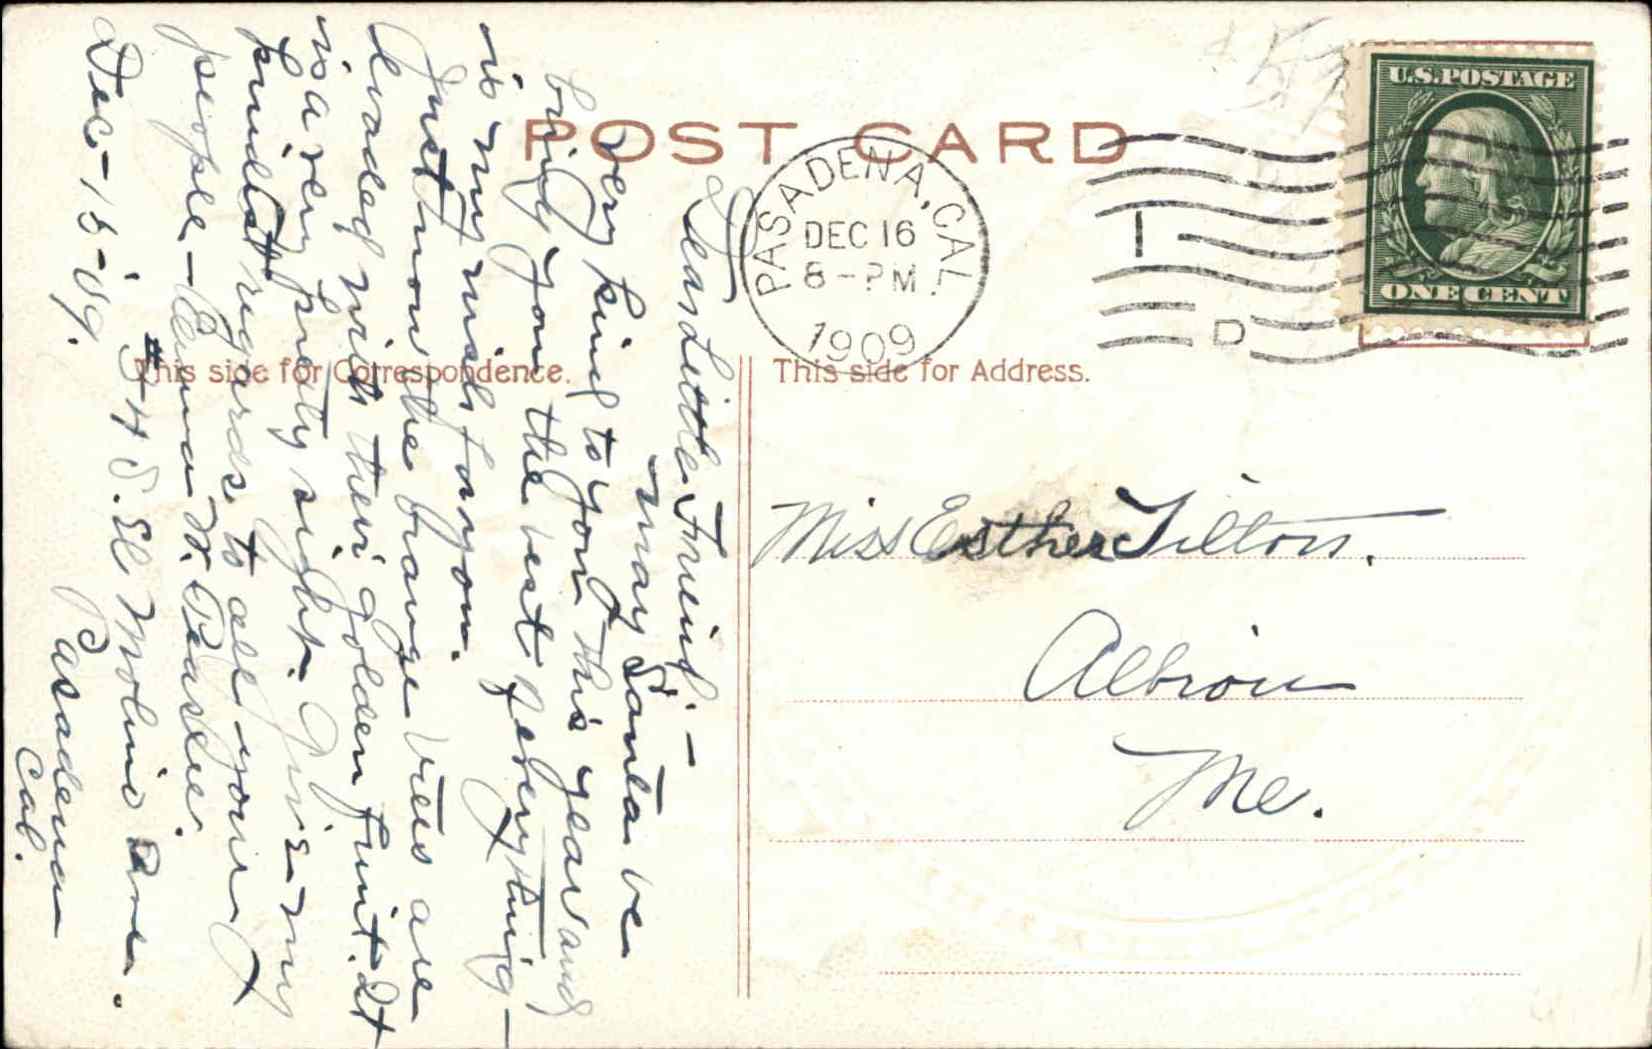 POST CARD
U.S. POSTAGE
ONE CENT
PASADENA, CAL.
DEC 16
8-PM
1909
D
This side for Correspondence.
This side for Address.
Miss Esther Tilton.
Albion
Me.
Dear Little Friend:-
May Santa be
very kind to you this year and
bring you the best of everything-
is my wish for you.
Just now the orange trees are
loaded with their golden fruit. It
is a very pretty sight. Give my
kindest regards to all your
people - Emma
Dec-15-'09.
#54 S. El Molino Ave.
Pasadena
Cal.